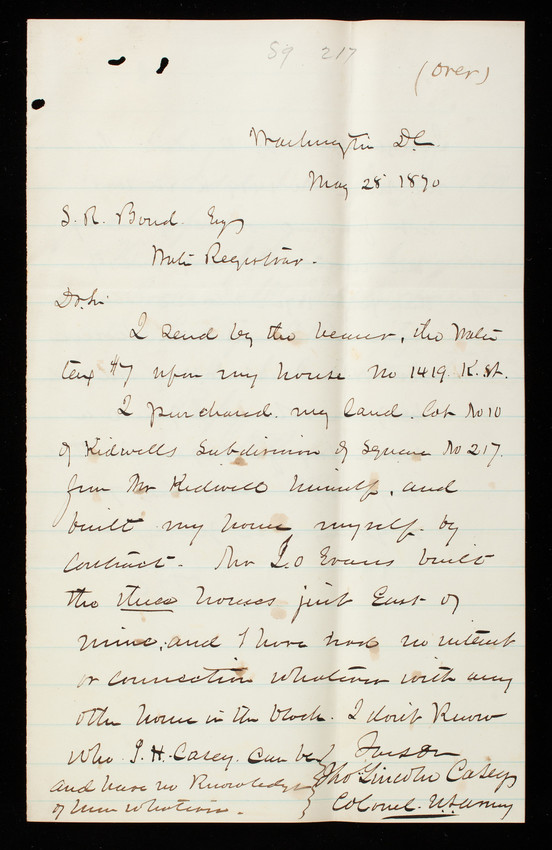 59 217
(over)
Washington D.C.
May 28 1890
S. R. Bond Esq
Water Registrar.
Dr. Sir
I send by the bearer, the Water
tax $7 upon my house No 1419 K. St.
I purchased my land lot No 10
of Kidwells Subdivision of Square No 217.
from Mr Kidwell himself, and
built my house myself by
contract. Mr J.O Evans built
the three houses just East of
mine; and I have had no interest
or connection whatever with any
other house in the block. I don't know
who J. H. Casey can be
and have no knowledge
of him whatever.
Tho: Lincoln Casey
Colonel U.S. Army